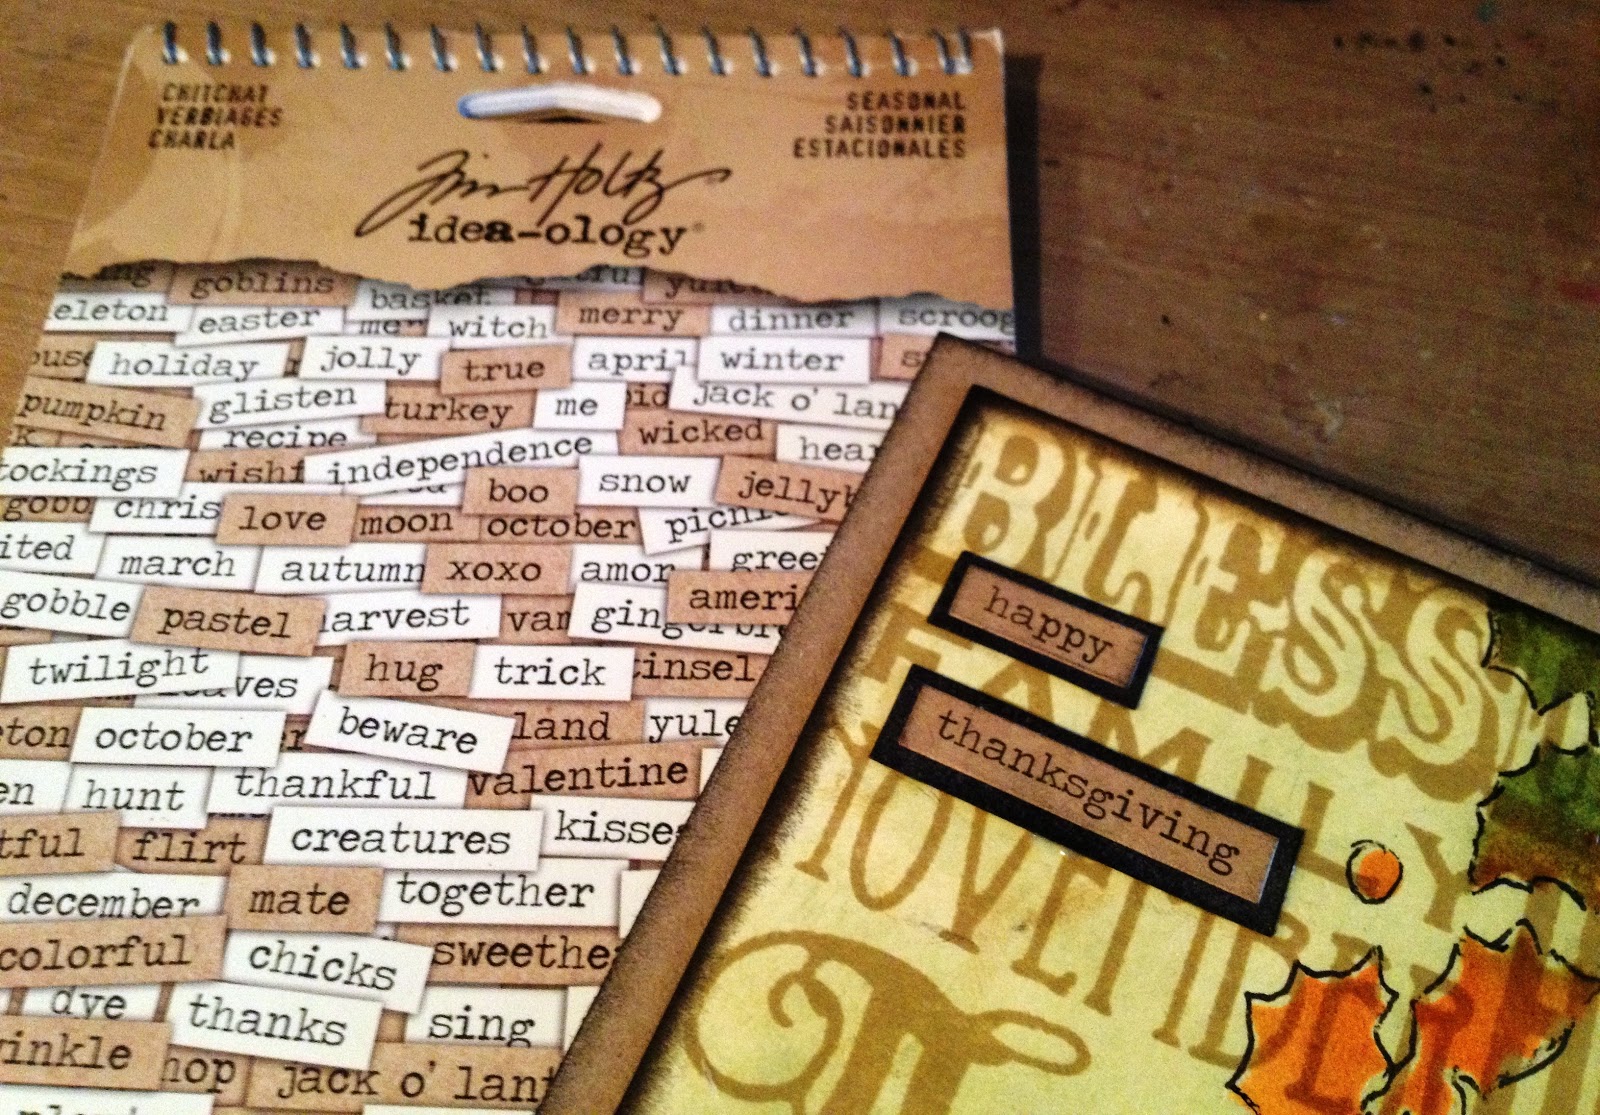 CHITCHAT
VERBIAGES
CHARLA
SEASONAL
SAISONNIER
ESTACIONALES
Tim Holtz
idea-ology®
goblins
eleton easter basket witch merry dinner scroog
holiday jolly true april winter
pumpkin glisten turkey me jack o' lan
recipe independence wicked hear
tockings wishf boo snow jellyb
gobb chris love moon october picni
ited march autumn xoxo amor gree
gobble pastel arvest van ging ameri
twilight aves hug trick tinsel
eton october beware land yule
en hunt thankful valentine
tful flirt creatures kisse
december mate together
colorful chicks sweethea
dye thanks sing
inkle hop jack o' lant
BLESS
happy
FAMILY
thanksgiving
NOVEMBER